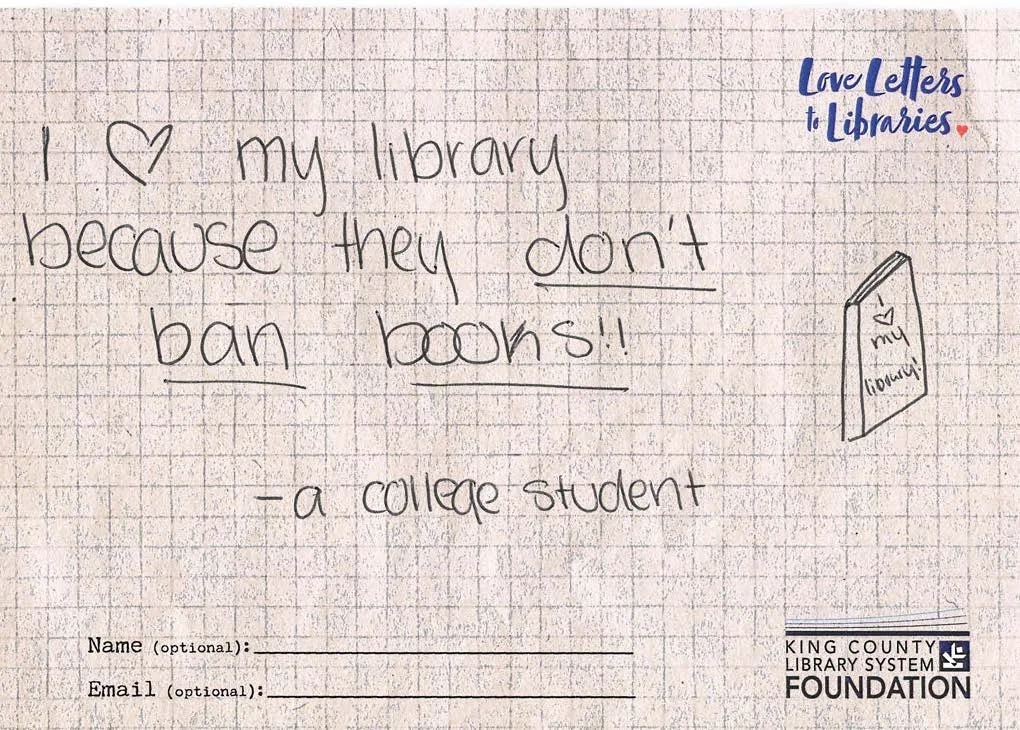 Love Letters
to Libraries
I ♡ my library
because they don't
ban books!!
I
♡
my
library!
-a college student
Name (optional):
Email (optional):
KING COUNTY
LIBRARY SYSTEM
FOUNDATION